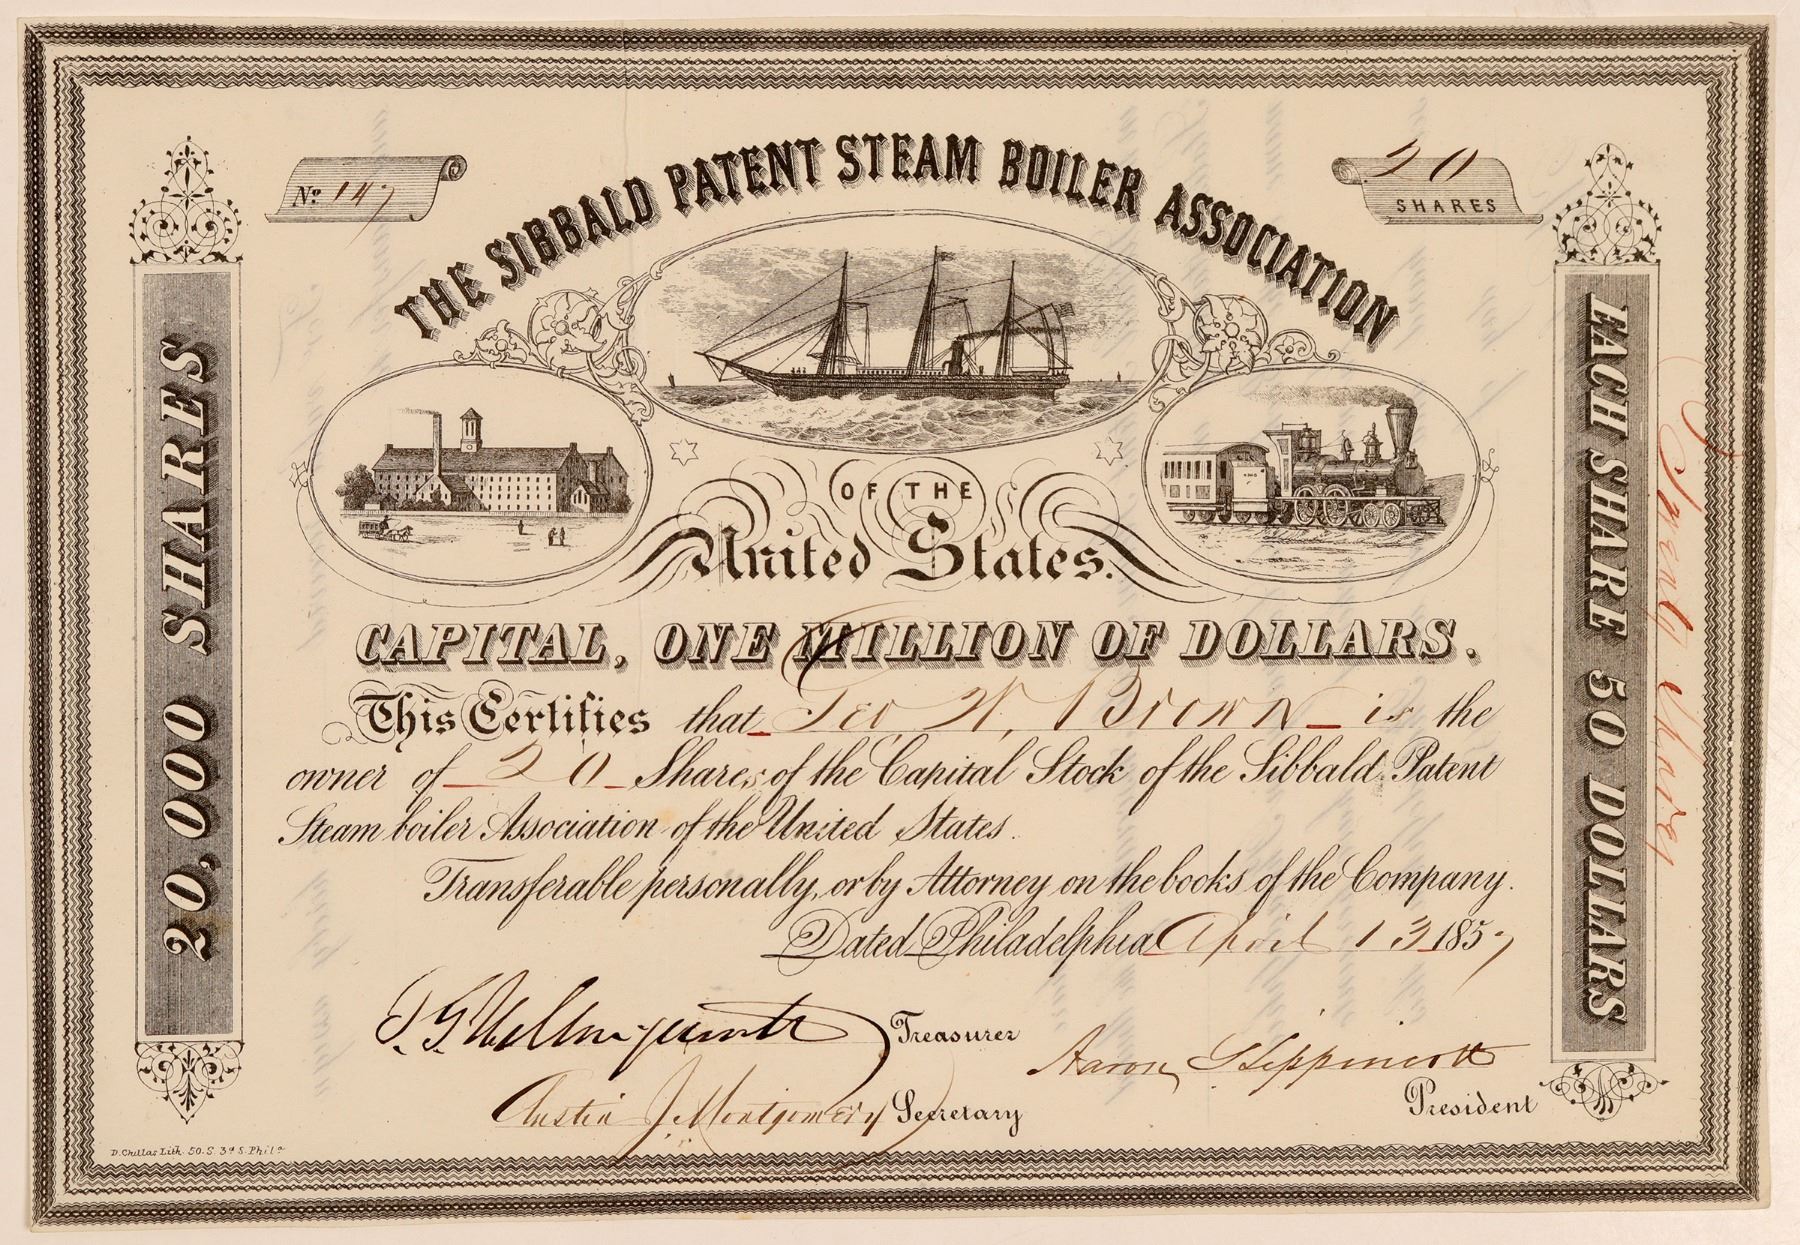 No. 147
20
SHARES
THE SIBBALD PATENT STEAM BOILER ASSOCIATION
OF THE
United States.
CAPITAL, ONE MILLION OF DOLLARS.
This Certifies that Geo. W. Brown is the
owner of 20 Shares of the Capital Stock of the Sibbald Patent
Steam boiler Association of the United States.
Transferable personally, or by Attorney on the books of the Company.
Dated Philadelphia April 13 1857
Treasurer
Aaron S Lippincott
Austin J. Montgomery Secretary
President
D. Chillas Lith. 50. S. 3d S. Phila
20,000 SHARES
EACH SHARE 50 DOLLARS
Twenty shares